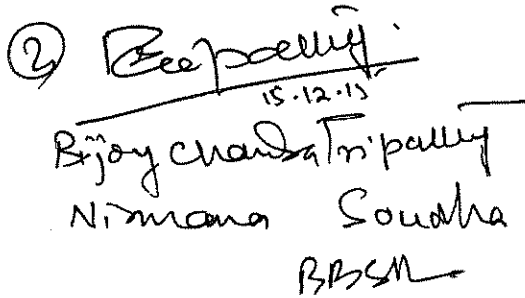 ②
15.12.15
Bijoy Chandra Tripathy
Nirmana Soudha
BBSR